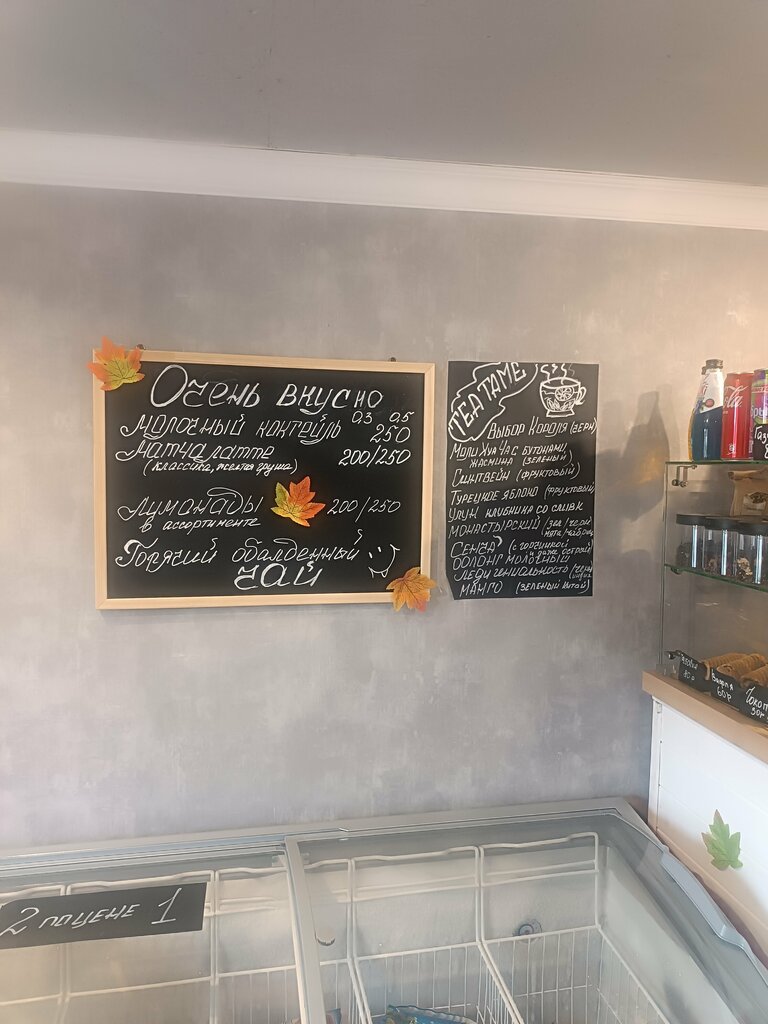 Очень вкусно
0,3 0,5
Молочный коктейль 250
Матча латте 200/250
(классика, желтая груша)
Лимонады 200/250
в ассортименте
Горячий обалденный
чай
TEATAME
Выбор Короля (зерн)
Моли Хуа Ча с бутонами
жасмина (зеленый)
Глинтвейн (фруктовый)
Турецкое яблоко (фруктовый)
Улун клубника со сливк
Монастырский (зел/черн
мята/чабрец
Сенча (с горчинкой
и даже острый)
Оолонг молочный
Леди гениальность
Манго (зеленый китай)
60р
2 по цене 1